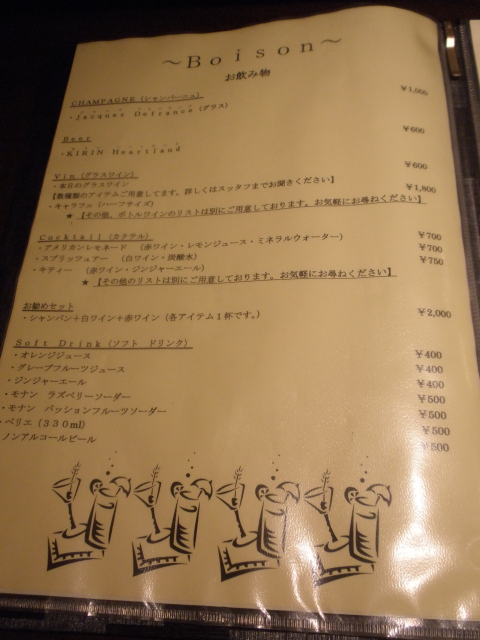 ～Ｂｏｉｓｏｎ～
お飲み物
CHAMPAGNE（シャンパーニュ） ￥1,000
・Jacques Defrance（グラス）
Beer ￥600
・KIRIN Heartland
Vin（グラスワイン） ￥600
・本日のグラスワイン
【数種類のアイテムご用意してます。詳しくはスッタフまでお聞きください】
・キャラフェ（ハーフサイズ） ￥1,800
★【その他、ボトルワインのリストは別にご用意しております。お気軽にお尋ねください】
Cocktail（カクテル）
・アメリカンレモネード （赤ワイン・レモンジュース・ミネラルウォーター） ￥700
・スプリッツェアー （白ワイン・炭酸水） ￥700
・キティー （赤ワイン・ジンジャーエール） ￥750
★【その他のリストは別にご用意しております。お気軽にお尋ねください】
お勧めセット
・シャンパン＋白ワイン＋赤ワイン（各アイテム１杯です。） ￥2,000
Soft Drink（ソフト ドリンク）
・オレンジジュース ￥400
・グレープフルーツジュース ￥400
・ジンジャーエール ￥400
・モナン ラズベリーソーダー ￥500
・モナン パッションフルーツソーダー ￥500
・ペリエ（３３０ml） ￥500
ノンアルコールビール ￥500